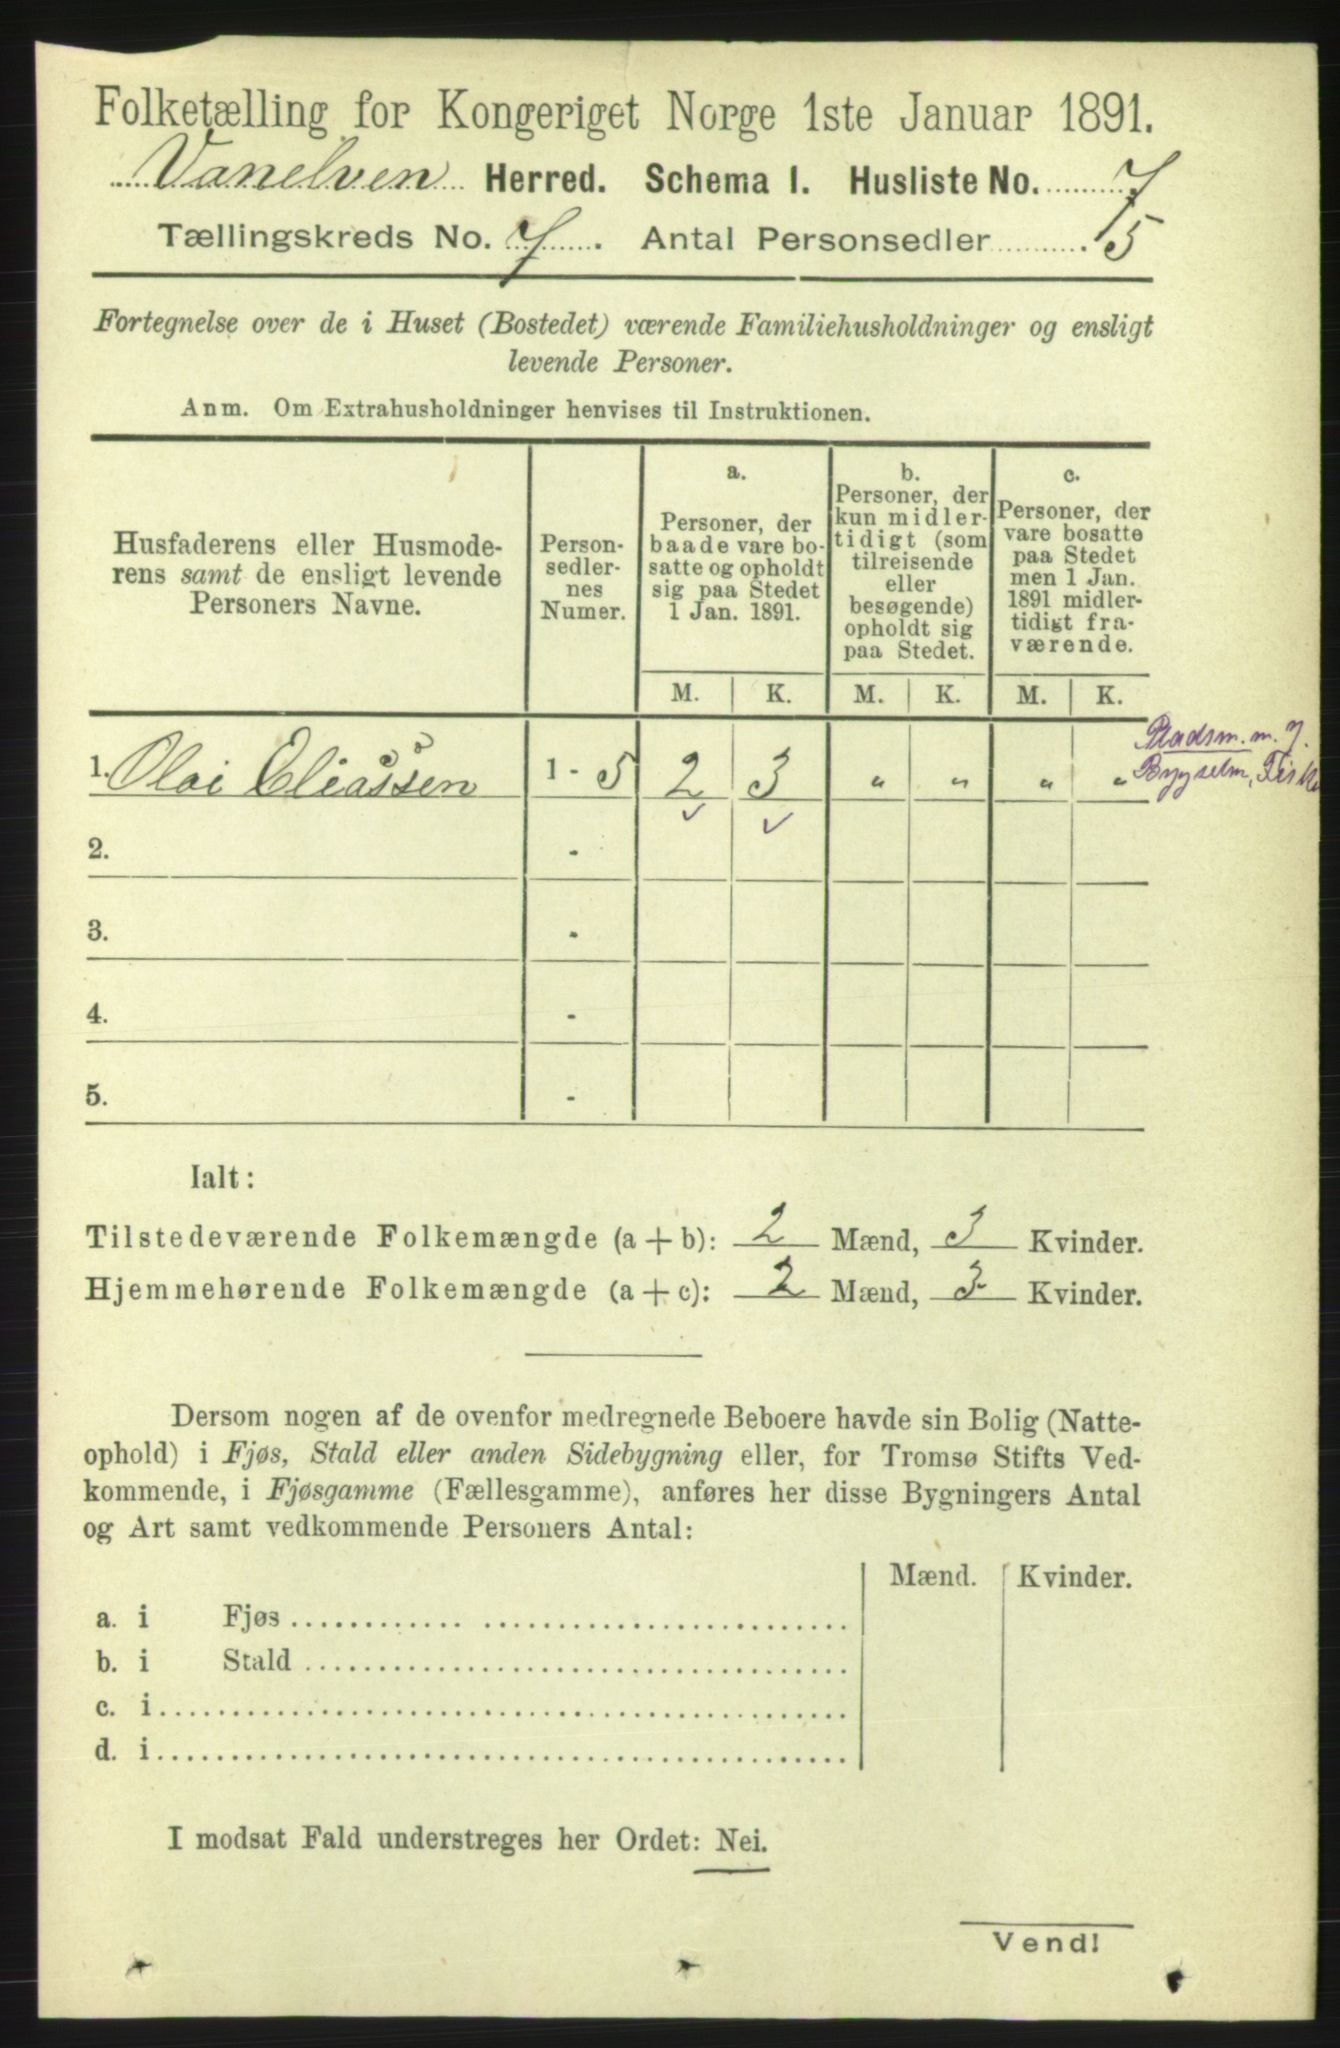 Folketælling for Kongeriget Norge 1ste Januar 1891.
Vanelven Herred. Schema I. Husliste No. 7
Tællingskreds No. 7. Antal Personsedler 5
Fortegnelse over de i Huset (Bostedet) værende Familiehusholdninger og ensligt
levende Personer.
Anm. Om Extrahusholdninger henvises til Instruktionen.
Husfaderens eller Husmode-
rens samt de ensligt levende
Personers Navne.
Person-
sedler-
nes
Numer.
a.
Personer, der
baade vare bo-
satte og opholdt
sig paa Stedet
1 Jan. 1891.
b.
Personer, der
kun midler-
tidigt (som
tilreisende
eller
besøgende)
opholdt sig
paa Stedet.
c.
Personer, der
vare bosatte
paa Stedet
men 1 Jan.
1891 midler-
tidigt fra-
værende.
M. K. M. K. M. K.
1. Olai Eliassen 1 - 5 2 3 " " " "
Pladsm. m. J.
Bygselm, Fisker
2. -
3. -
4. -
5. -
Ialt:
Tilstedeværende Folkemængde (a + b): 2 Mænd, 3 Kvinder.
Hjemmehørende Folkemængde (a + c): 2 Mænd, 3 Kvinder.
Dersom nogen af de ovenfor medregnede Beboere havde sin Bolig (Natte-
ophold) i Fjøs, Stald eller anden Sidebygning eller, for Tromsø Stifts Ved-
kommende, i Fjøsgamme (Fællesgamme), anføres her disse Bygningers Antal
og Art samt vedkommende Personers Antal:
Mænd. Kvinder.
a. i Fjøs
b. i Stald
c. i
d. i
I modsat Fald understreges her Ordet: Nei.
Vend!